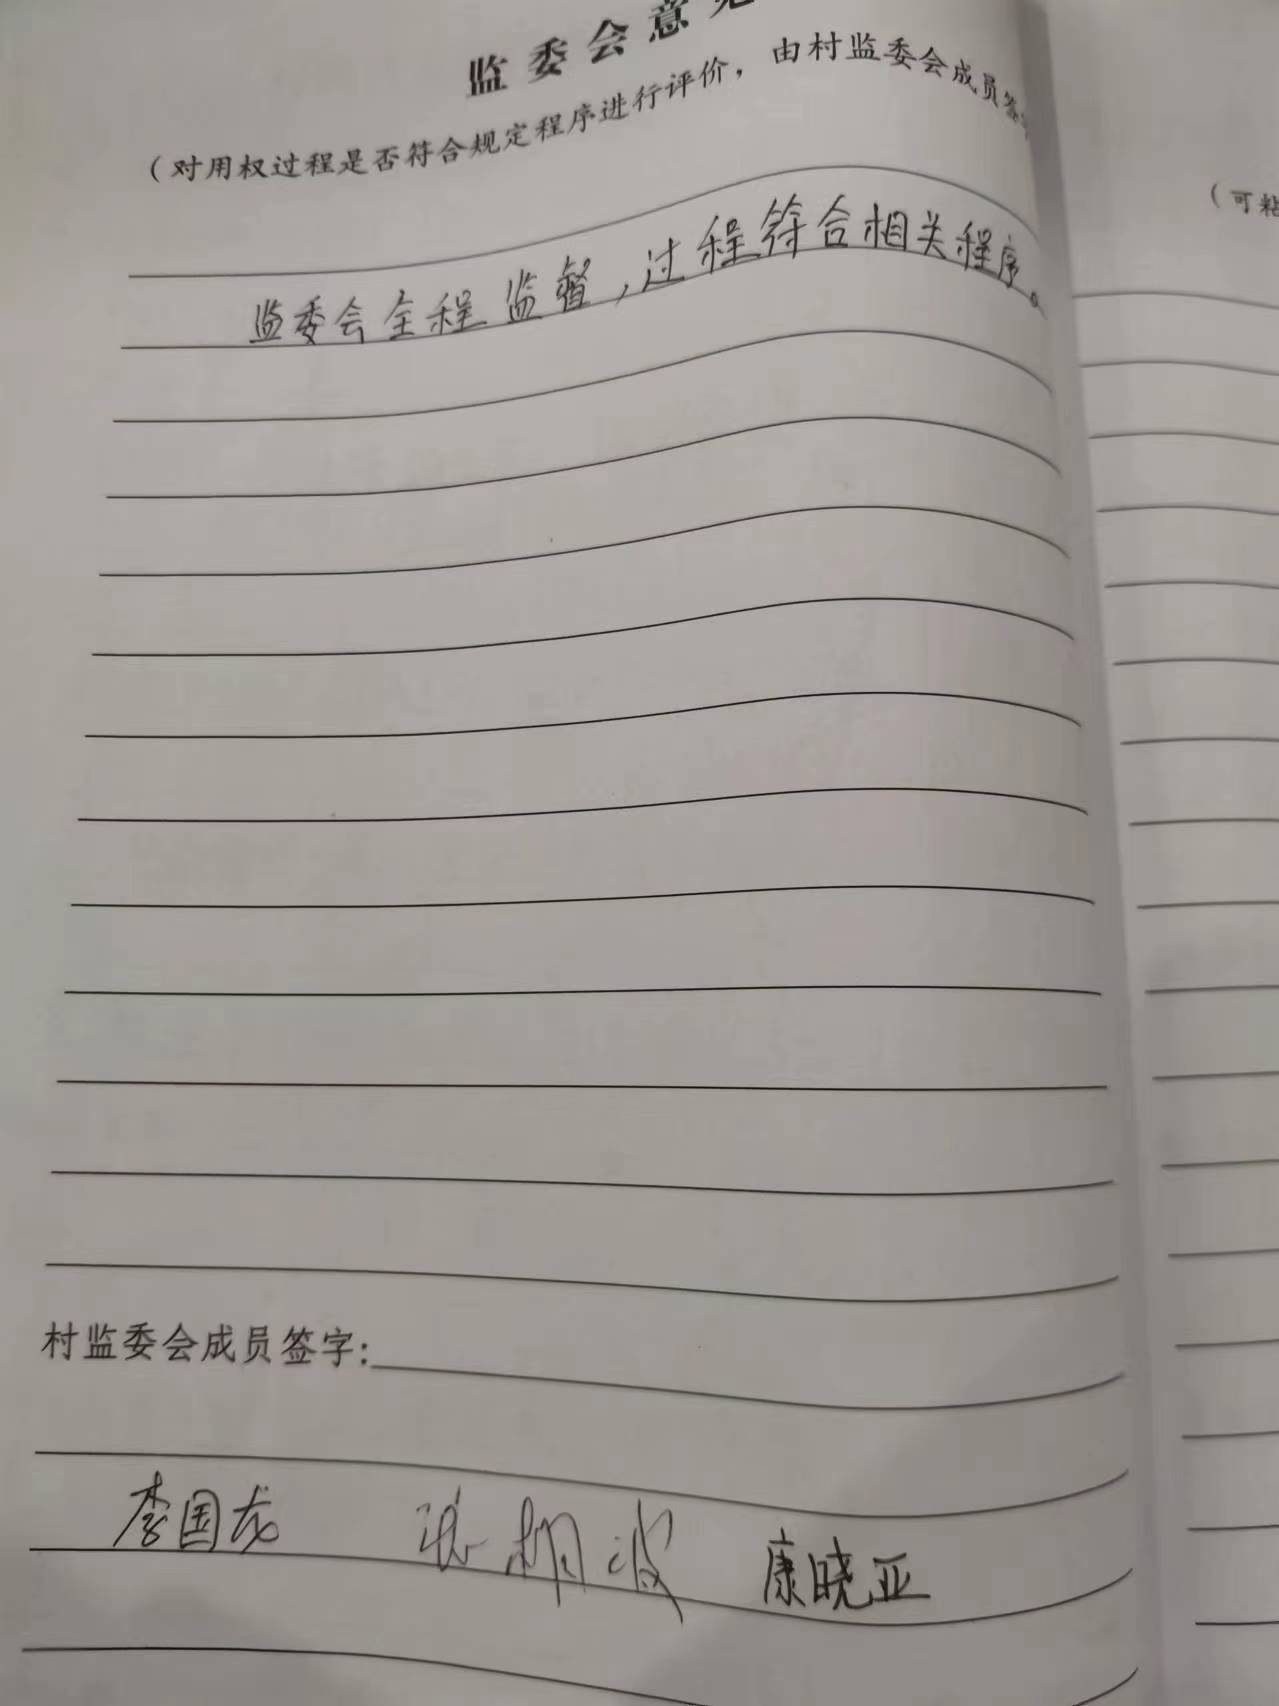 监委会意见
（对用权过程是否符合规定程序进行评价，由村监委会成员签字
（可粘
监委会全程监督，过程符合相关程序。
村监委会成员签字：
李国龙 康晓亚